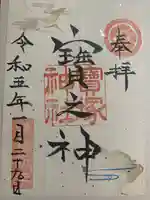 奉拝
寶之神
令和五年一月二十九日